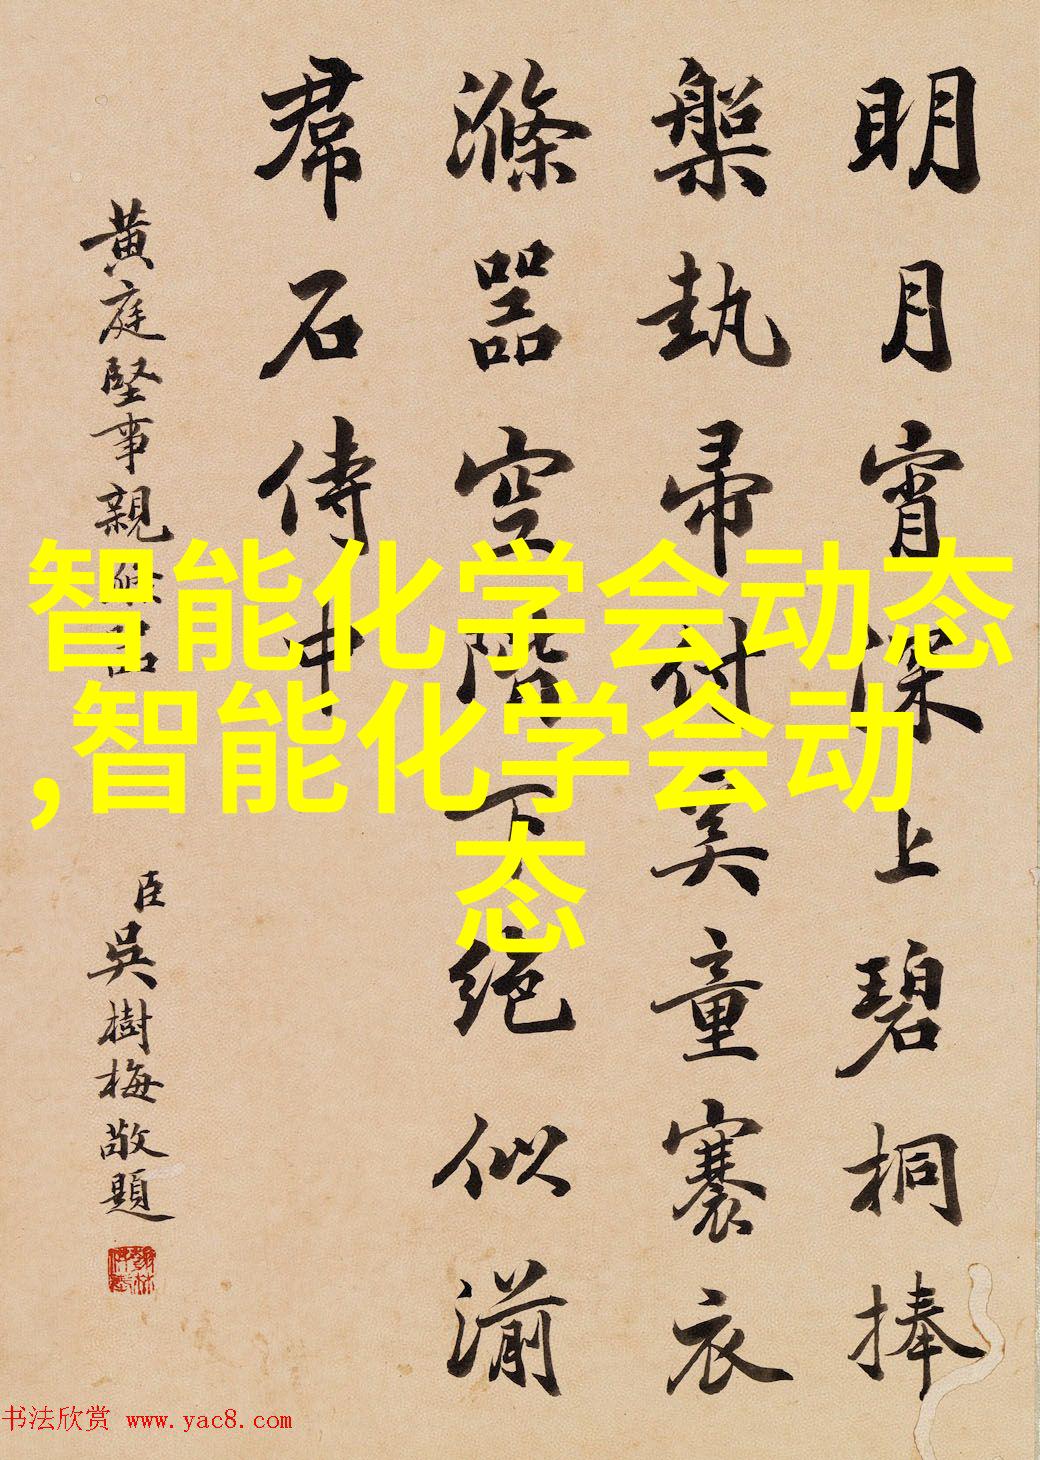 明月宵深上碧桐捧
槃執帚付奚童褰衣
滌器空階下絕似湔
帬石侍中
黃庭堅事親滌器
臣吳樹梅敬題
智能化学会动态
,智能化学会动
态
书法欣赏 www.yac8.com